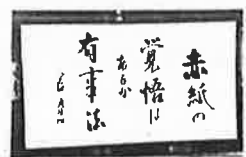 赤紙の
覚悟は
あるか
有事法